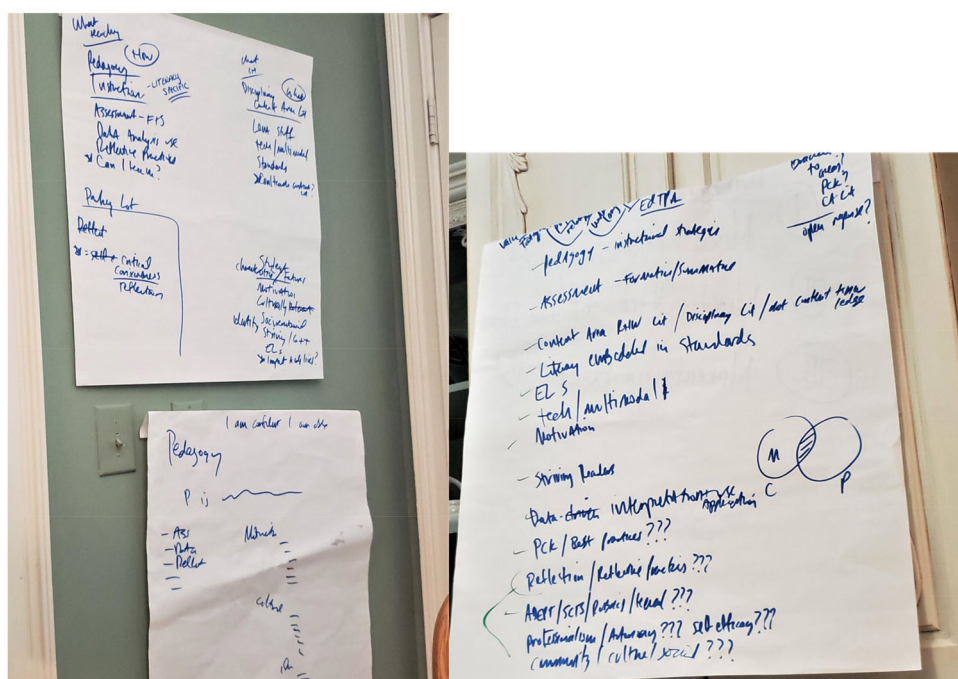 What
Pedagogy
HOW
Instruction
- LITERACY
SPECIFIC
Assessment - F+S
Data Analysis use
Reflective Practices
Can I teach?
What
Disciplinary
Content Area Lit
tech/multimodal
Standards
Parking Lot
Reflect
Critical
Consciousness
Reflection
Student
characteristics/
Motivation
Culturally
Identity
Striving / G++
ELs
I am confident I can
Pedagogy
- Ass
- Data
- Reflect
Motivation
culture
EdTPA
to
PCK?
CA Lit
open response?
- pedagogy - instructional strategies
- Assessment - Formative/Summative
- Content Area R+W Lit / Disciplinary Lit / not content knowledge
- Literacy embedded in Standards
- ELS
- tech/multimodal
- Motivation
- Striving Readers
- Data-driven interpretation + use
Application
- PCK / Best practices ???
M
C
P
Reflection / Reflective practices ???
- ADEPT/SCTS/Rubrics/ ???
Professionalism / Autonomy ??? self efficacy???
Community / culture / social ???